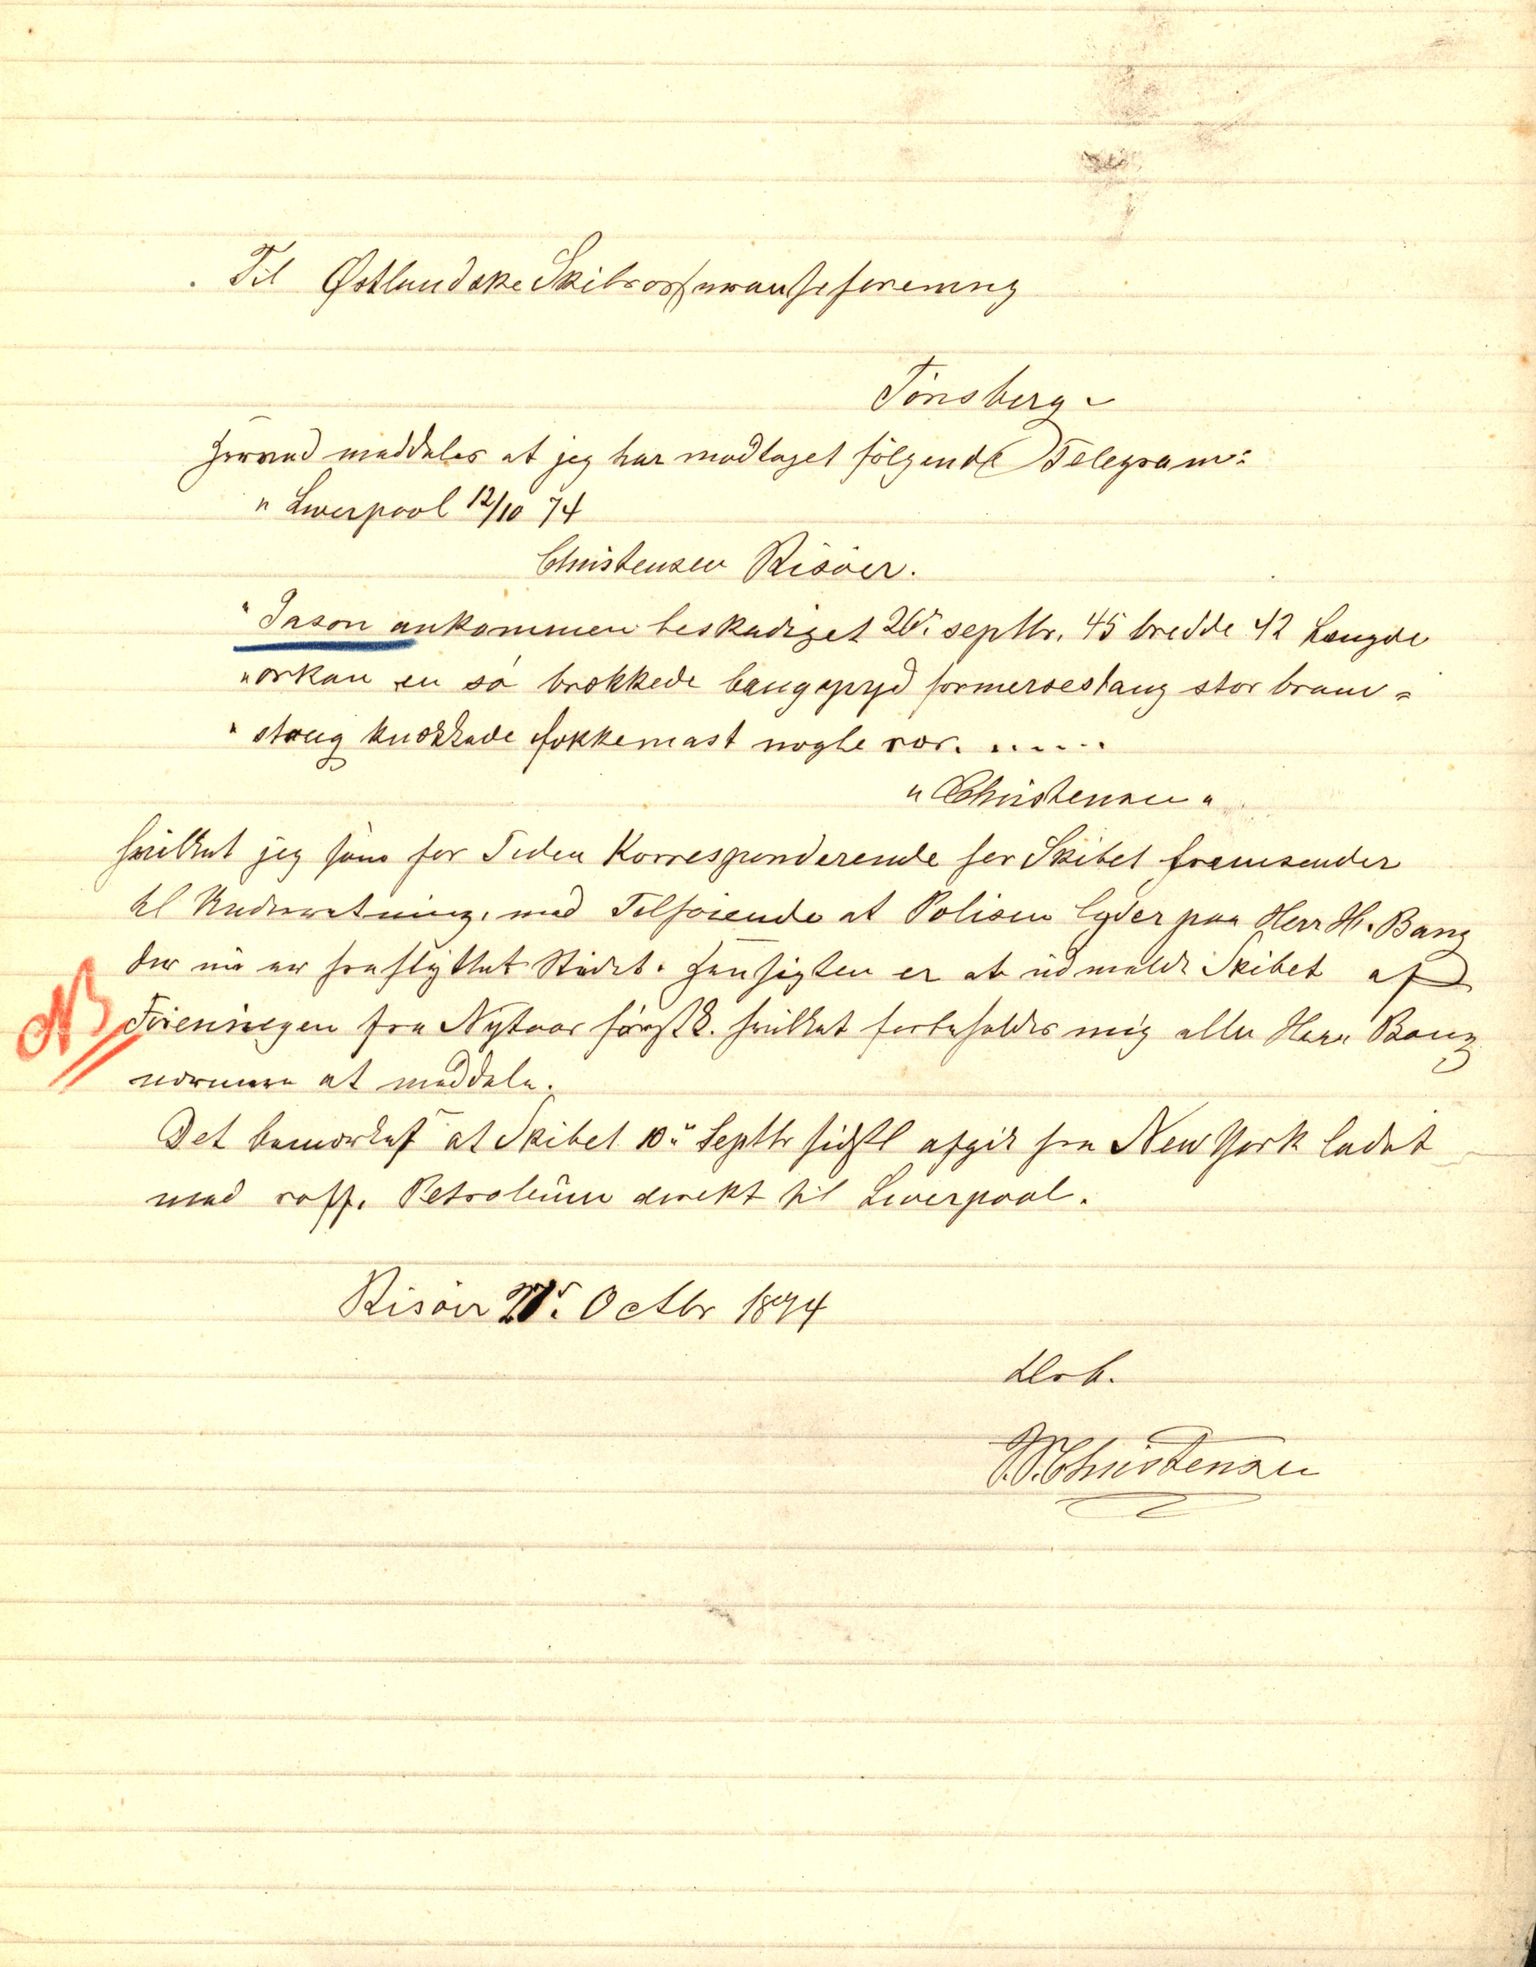 Til Østlandske Skibsassuranseforening
Tönsberg
Herved meddeles at jeg har modtaget fölgende Telegram:
" Liverpool 12/10 74
Christensen Risöer.
" Jason ankommen beskadiget 26de septbr. 45 bredde 42 længde
" orkan en sö brækkede baugspryd formersestang stor bram =
" stang knækkede fokkemast nogle rær. . . . . . .
" Christensen "
hvilket jeg som for Tiden Korresponderende for Skibet fremsender
til Underretning, med Tilföiende at Polisen lyder paa Herr H. Bang
der nu er fraflyttet Stedet. Hensigten er at udmelde Skibet af
NB
Foreningen fra Nytaar förstk. hvilket forbeholdes mig eller Herr Bang
nærmere at meddele.
Det bemærkes at Skibet 10de Septbr sidstl afgik fra New York ladet
med raff. Petroleum direkt til Liverpool.
Risöer Octbr 1874
Ærb.
Christensen